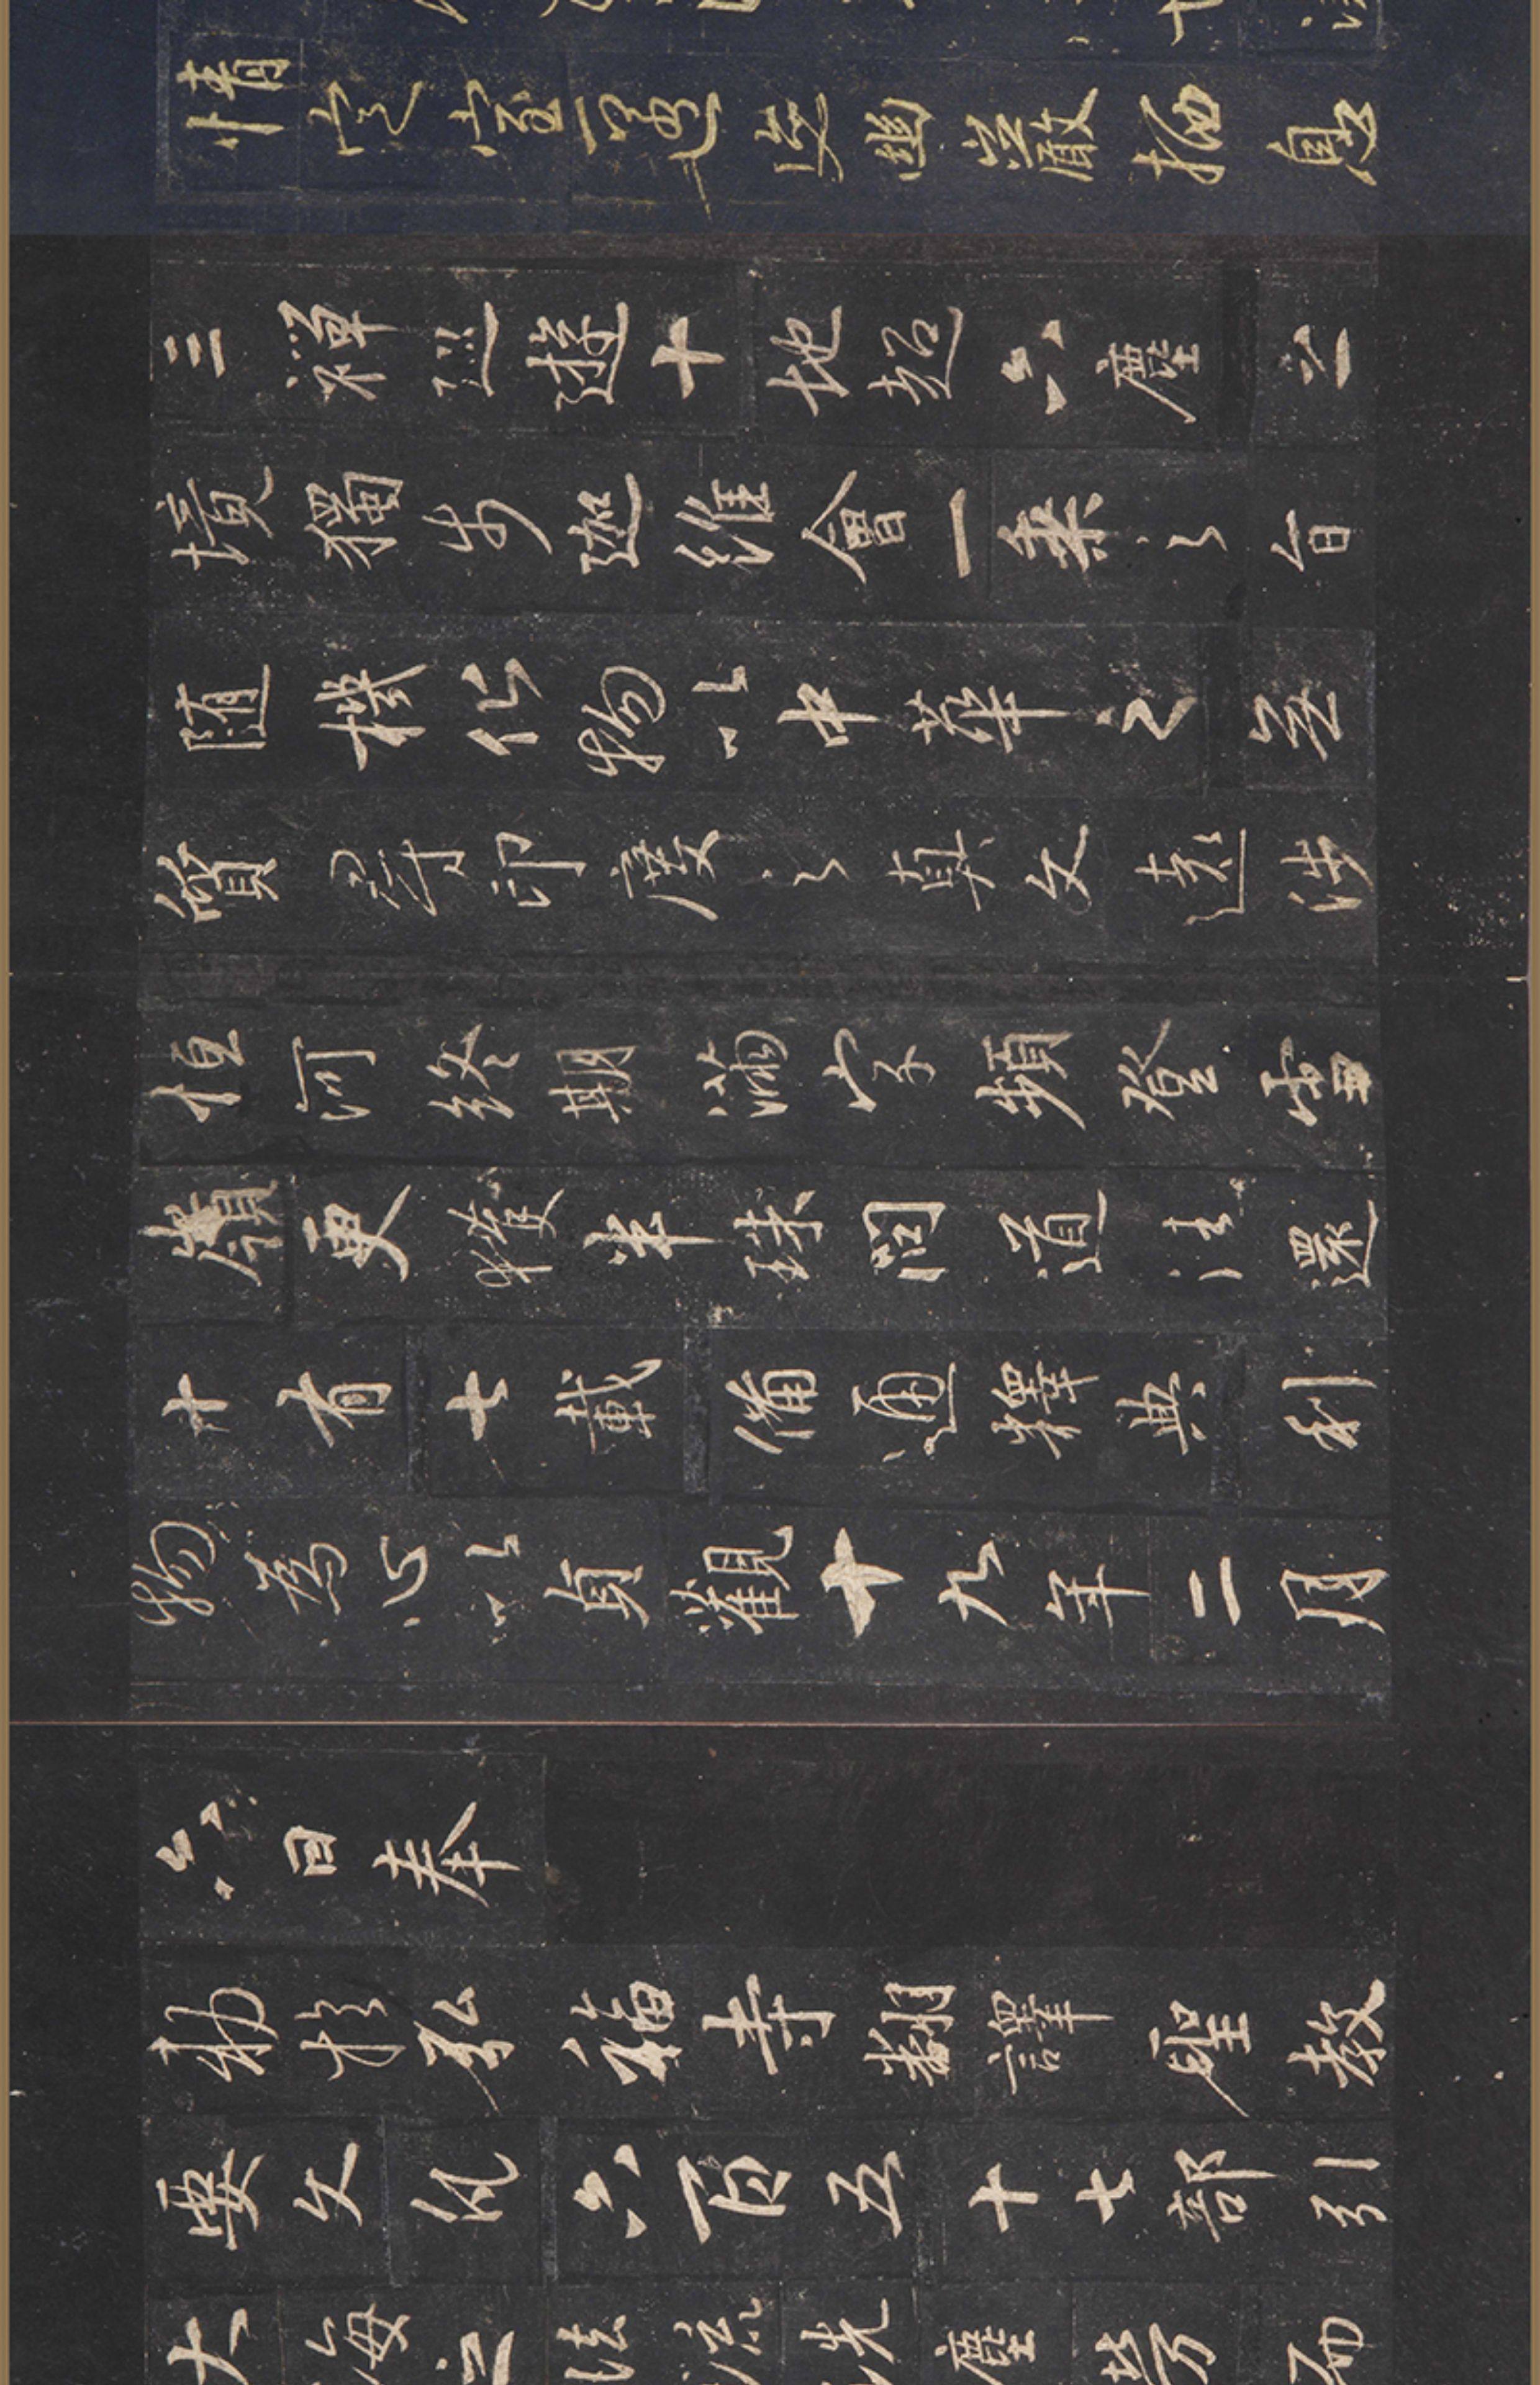 情定室匿迹幽巖栖息
三禪巡遊十地超六塵之
境獨步迦維會一乘之旨
隨機化物以中華之无
質尋印度之真文遠涉
恒河終期滿字頻登雪
嶺更獲半珠問道法還
十有七載備通釋典利
物為心以貞觀十九年二月
六日奉
勑於弘福寺翻譯聖教
要文凡六百五十七部引
大海之法流洗塵勞而